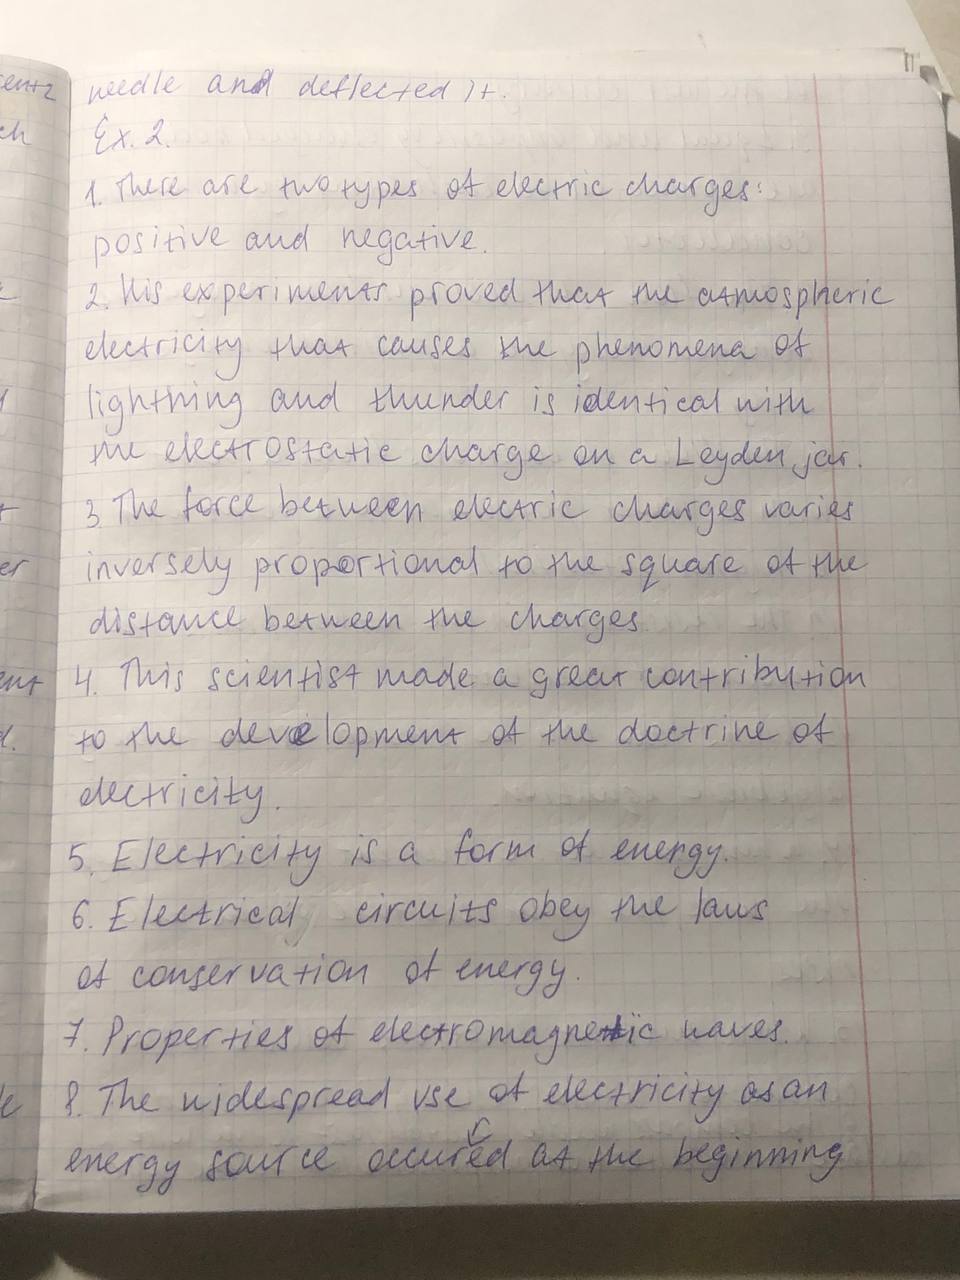 needle and deflected it.
Ex. 2.
1. There are two types of electric charges:
positive and negative.
2. His experiments proved that the atmospheric
electricity that causes the phenomena of
lighthing and thunder is identical with
the electrostatic charge on a Leyden jar.
3. The force between electric charges varies
inversely proportional to the square of the
distance between the charges
4. This scientist made a great contribution
to the development of the doctrine of
electricity.
5. Electricity is a form of energy.
6. Electrical circuits obey the laws
of conservation of energy.
7. Properties of electromagnetic waves.
8. The widespread use of electricity as an
energy source occured at the beginning